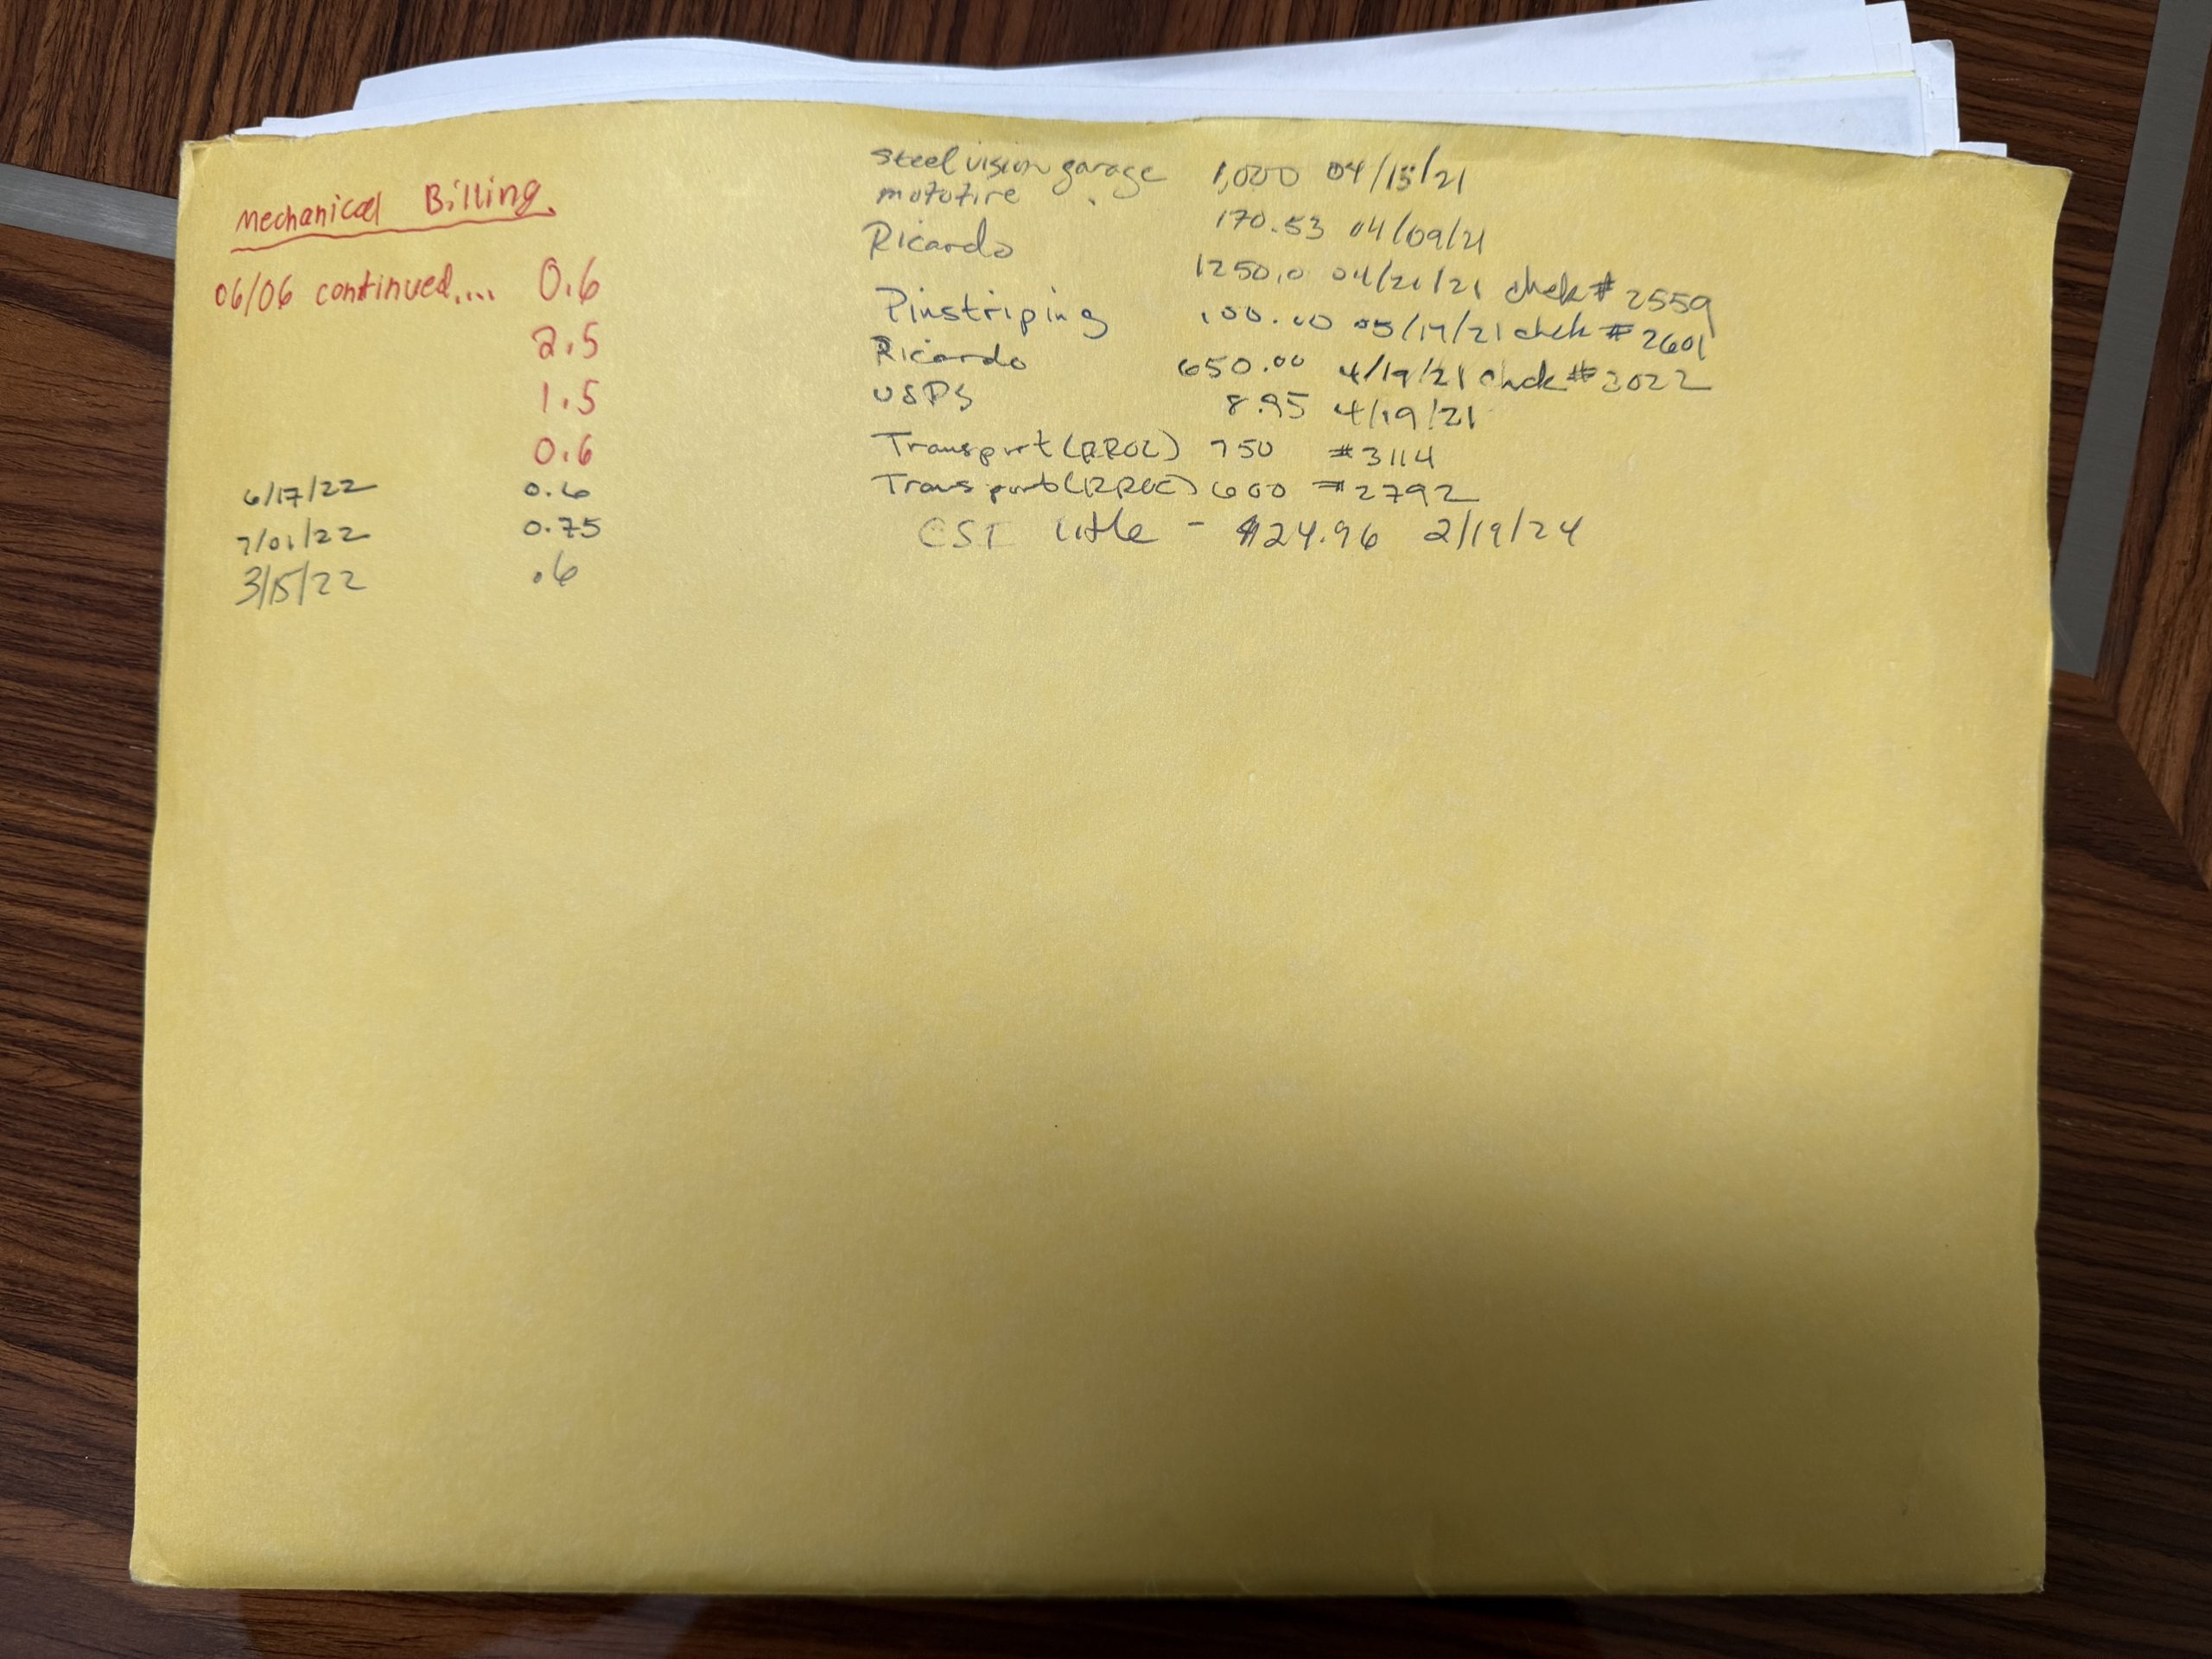 Mechanical Billing.
06/06 continued.... 0.6
2.5
1.5
0.6
6/17/22 0.6
7/01/22 0.75
3/15/22 .6
Steel vision garage 1,000 04/15/21
mototire 170.53 04/09/21
Ricardo 1250.0 04/21/21 chek # 2559
Pinstriping 100.00 05/14/21 chek # 2601
Ricardo 650.00 4/19/21 chck # 3022
USPS 8.95 4/19/21
Transport (RROC) 750 #3114
Transport (RROC) 600 #2792
CSI title - $24.96 2/19/24